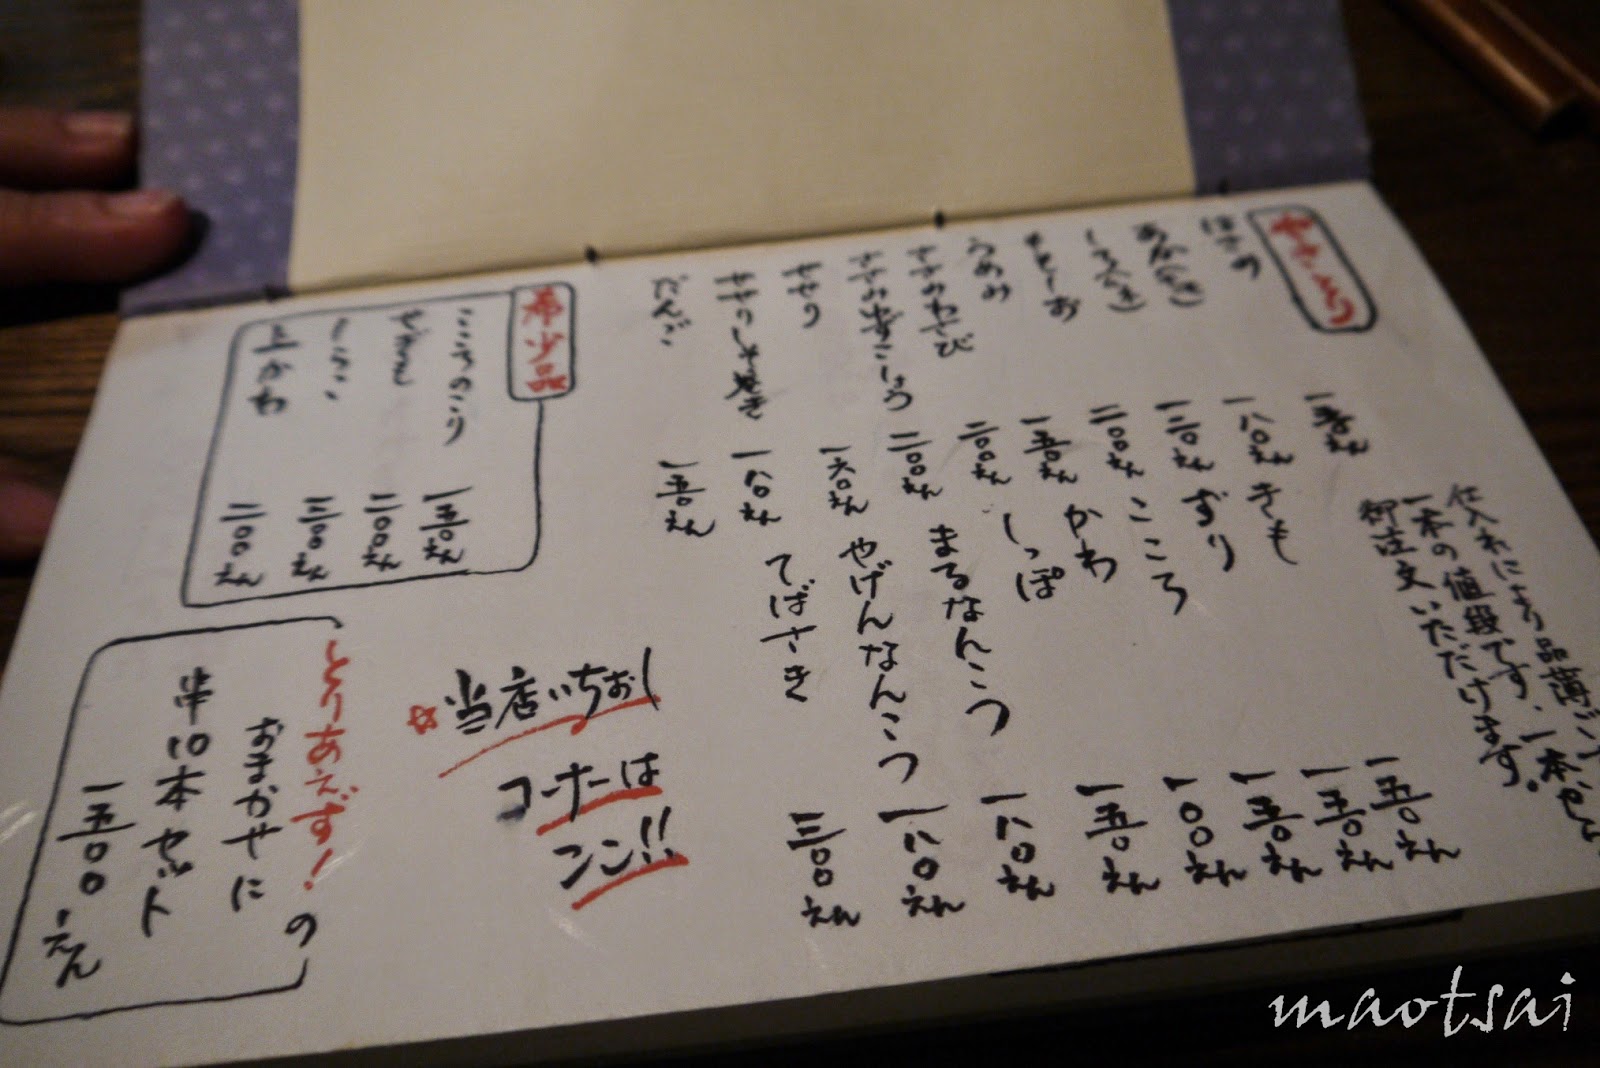 やきとり
一五〇えん
一八〇えん
一三〇えん
二〇〇えん
一五〇えん
ささみわさび 二〇〇えん
ささみゆずこしょう 二〇〇えん
せせり 一六〇えん
せせりしょうが焼き 一八〇えん
だんご 一五〇えん
仕入れにより品薄
一本の値段です、一本から
御注文いただけます。
きも 一五〇えん
ずり 一五〇えん
こころ 一五〇えん
かわ 一〇〇えん
しっぽ 一五〇えん
まるなんこつ 一八〇えん
やげんなんこつ 一八〇えん
てばさき 三〇〇えん
希少品
こころのこり 一五〇えん
せぎも 二〇〇えん
しらこ 三〇〇えん
上かわ 二〇〇えん
☆当店いちおし
コーナーは
ココ!!
とりあえず!の
おまかせに
串10本セット
一五〇〇えん
maotsai